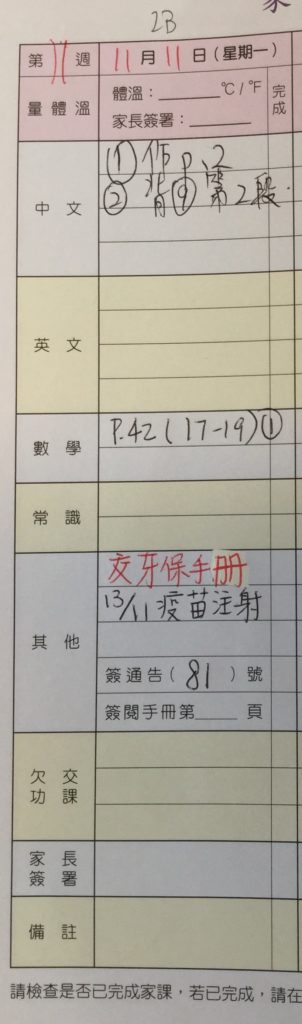 2B
第 11 週 11 月 11 日（星期一）
量體溫 體溫：______℃/℉ 完成
家長簽署：______
中文 ① 作 P.2
② 背⑨第2段.
英文
數學 P.42(17-19)①
常識
其他 交牙保手册
13/11 疫苗注射
簽通告（81）號
簽閱手冊第____頁
欠交功課
家長簽署
備註
請檢查是否已完成家課，若已完成，請在